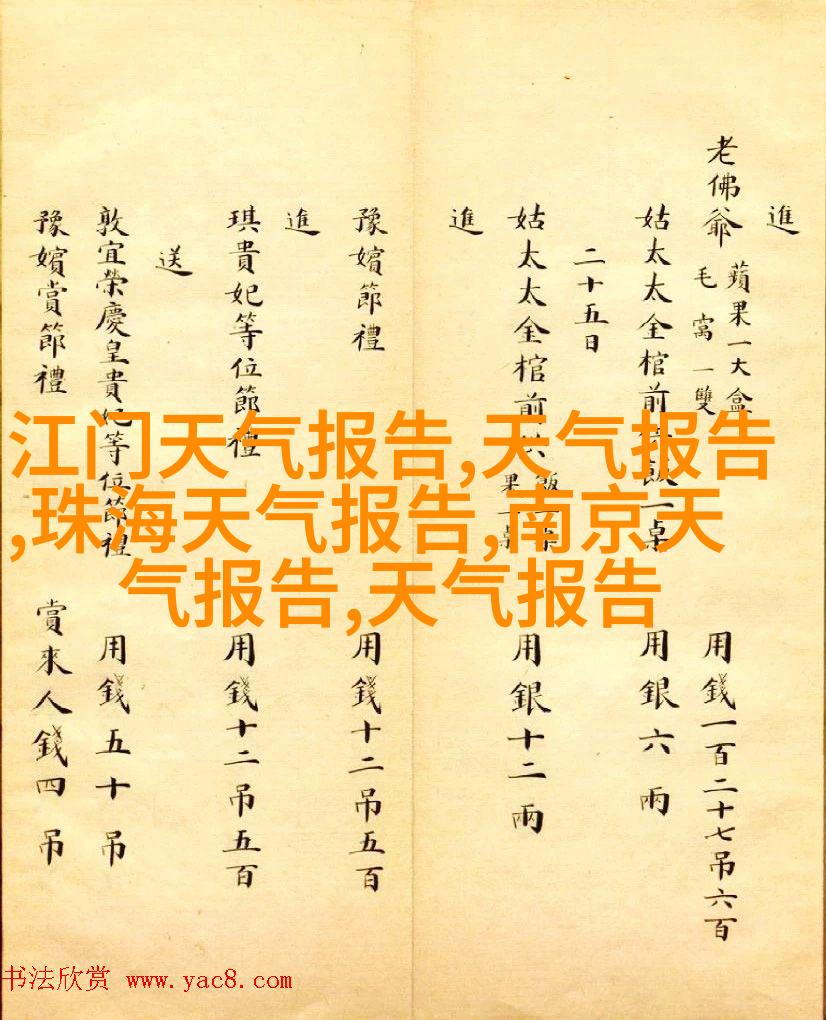 進
老佛爺 蘋果一大盒 毛窩一雙 用錢一百二十七吊六百
姑太太金棺前 飯一桌 用銀六兩
二十五日
進
姑太太金棺前供 果一桌 飯一桌 用銀十二兩
豫嬪節禮 用錢十二吊五百
進
琪貴妃等位節禮 用錢十二吊五百
送
敦宜榮慶皇貴妃等位節禮 用錢五十吊
豫嬪賞節禮 賞來人錢四吊
江门天气报告,天气报告
,珠海天气报告,南京天
气报告,天气报告
书法欣赏 www.yac8.com